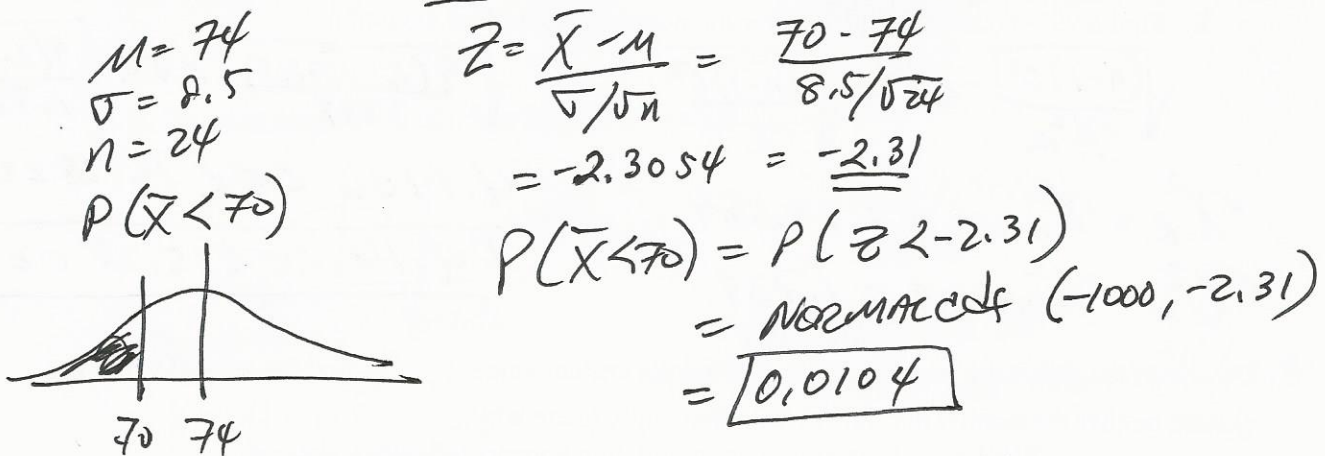 μ = 74
σ = 8.5
n = 24
P(x̄ < 70)
70 74
Z = x̄ - μ / σ/√n = 70 - 74 / 8.5/√24
= -2.3054 = -2.31
P(x̄<70) = P(z < -2.31)
= NORMALcdf (-1000, -2.31)
= 0.0104